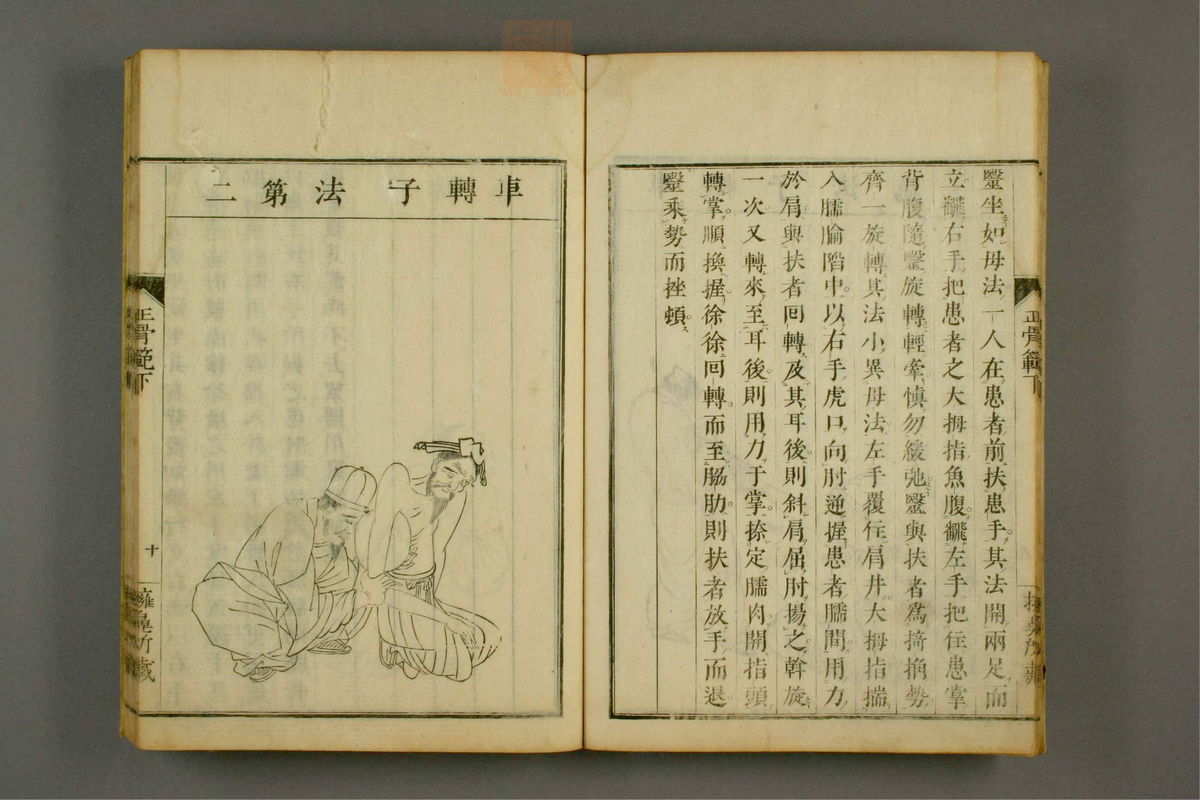 毉坐如母法一人在患者前扶患手其法開兩足而
立飜右手把患者之大拇指魚腹飜左手把住患掌
背腹隨毉旋轉輕牽慎勿緩弛毉與扶者為掎角勢
齊一旋轉其法小異母法左手覆住肩井大拇指揣
入臑腧陷中以右手虎口向肘逆握患者臑間用力
於肩與扶者回轉及其耳後則斜肩屈肘揚之斡旋
一次又轉來至耳後則用力于掌捺定臑肉開指頭
轉掌順換握徐徐回轉而至脇肋則扶者放手而退
毉乘勢而挫頓
正骨範下
車轉子法第二
正骨範下
十